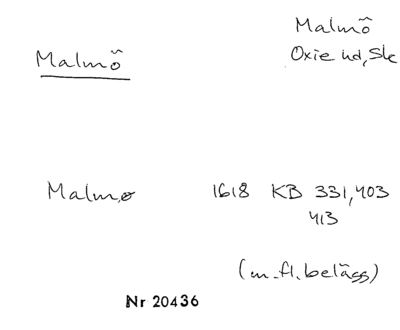 Malmö
Oxie hd, Sk
Malmö
Malmø 1618 KB 331, 403
413
(m.fl.belägg)
Nr 20436